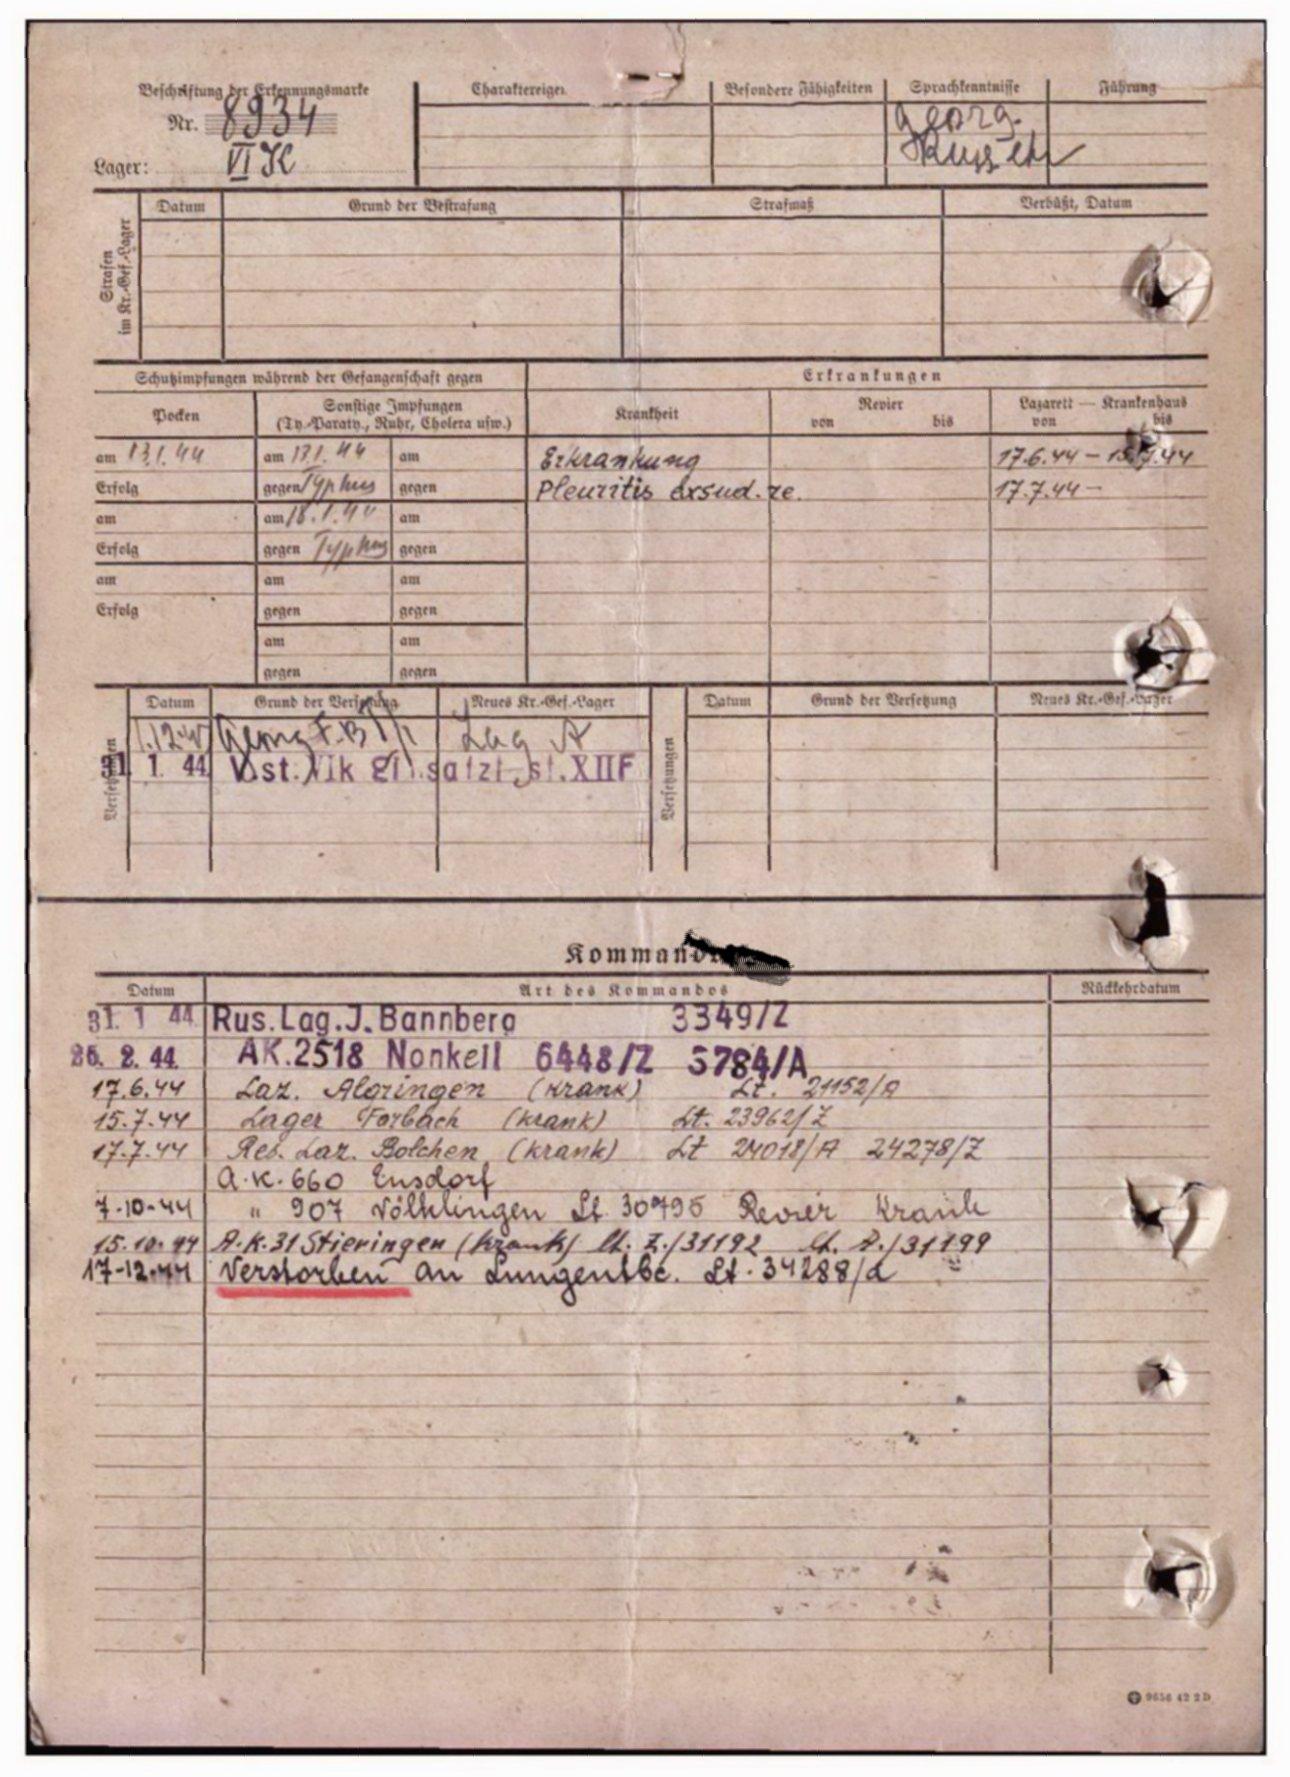 Beschriftung der Erkennungsmarke Charaktereigen Besondere Fähigkeiten Sprachkenntnisse Führung
Nr. 8934 georg.
Lager: VI K
Strafen im Kr.-Gef.-Lager
Datum Grund der Bestrafung Strafmaß Verbüßt, Datum
Schutzimpfungen während der Gefangenschaft gegen Erkrankungen
Pocken Sonstige Impfungen Krankheit Revier Lazarett — Krankenhaus
(Ty.-Paraty., Ruhr, Cholera usw.) von bis von bis
am 13.1.44 am 13.1.44 am Erkrankung 17.6.44 – 15.7.44
Erfolg gegen Typhus gegen Pleuritis exsud. re. 17.7.44 –
am am 18.1.44 am
Erfolg gegen Typhus gegen
am am am
Erfolg gegen gegen
am am
gegen gegen
Versetzungen
Datum Grund der Versetzung Neues Kr.-Gef.-Lager Datum Grund der Versetzung Neues Kr.-Gef.-Lager
Versetzungen
Georg Lag A
31. 1. 44 st. XIIF
Kommand
Datum Art des Kommandos Rückkehrdatum
31. 1 44 Rus. Lag. J. Bannberg 3349/Z
26. 2. 44. AK. 2518 Nonkeil 6448/Z 3784/A
17.6.44 Laz. Algringen (krank) Lt. 21152/A
15.7.44 Lager Forbach (krank) Lt. 23962/Z
17.7.44 Res. Laz. Bolchen (krank) Lt 24018/A 24278/Z
A.K. 660 Ensdorf
7-10-44 " 907 Völklingen Lt. 30795 Revier Krank
15.10.44 A.K. 31 Stieringen (krank) Lt. Z./31192 Lt. A./31199
17-12-44 Verstorben an Lungentbc. Lt. 34288/a
9656 42 2 D